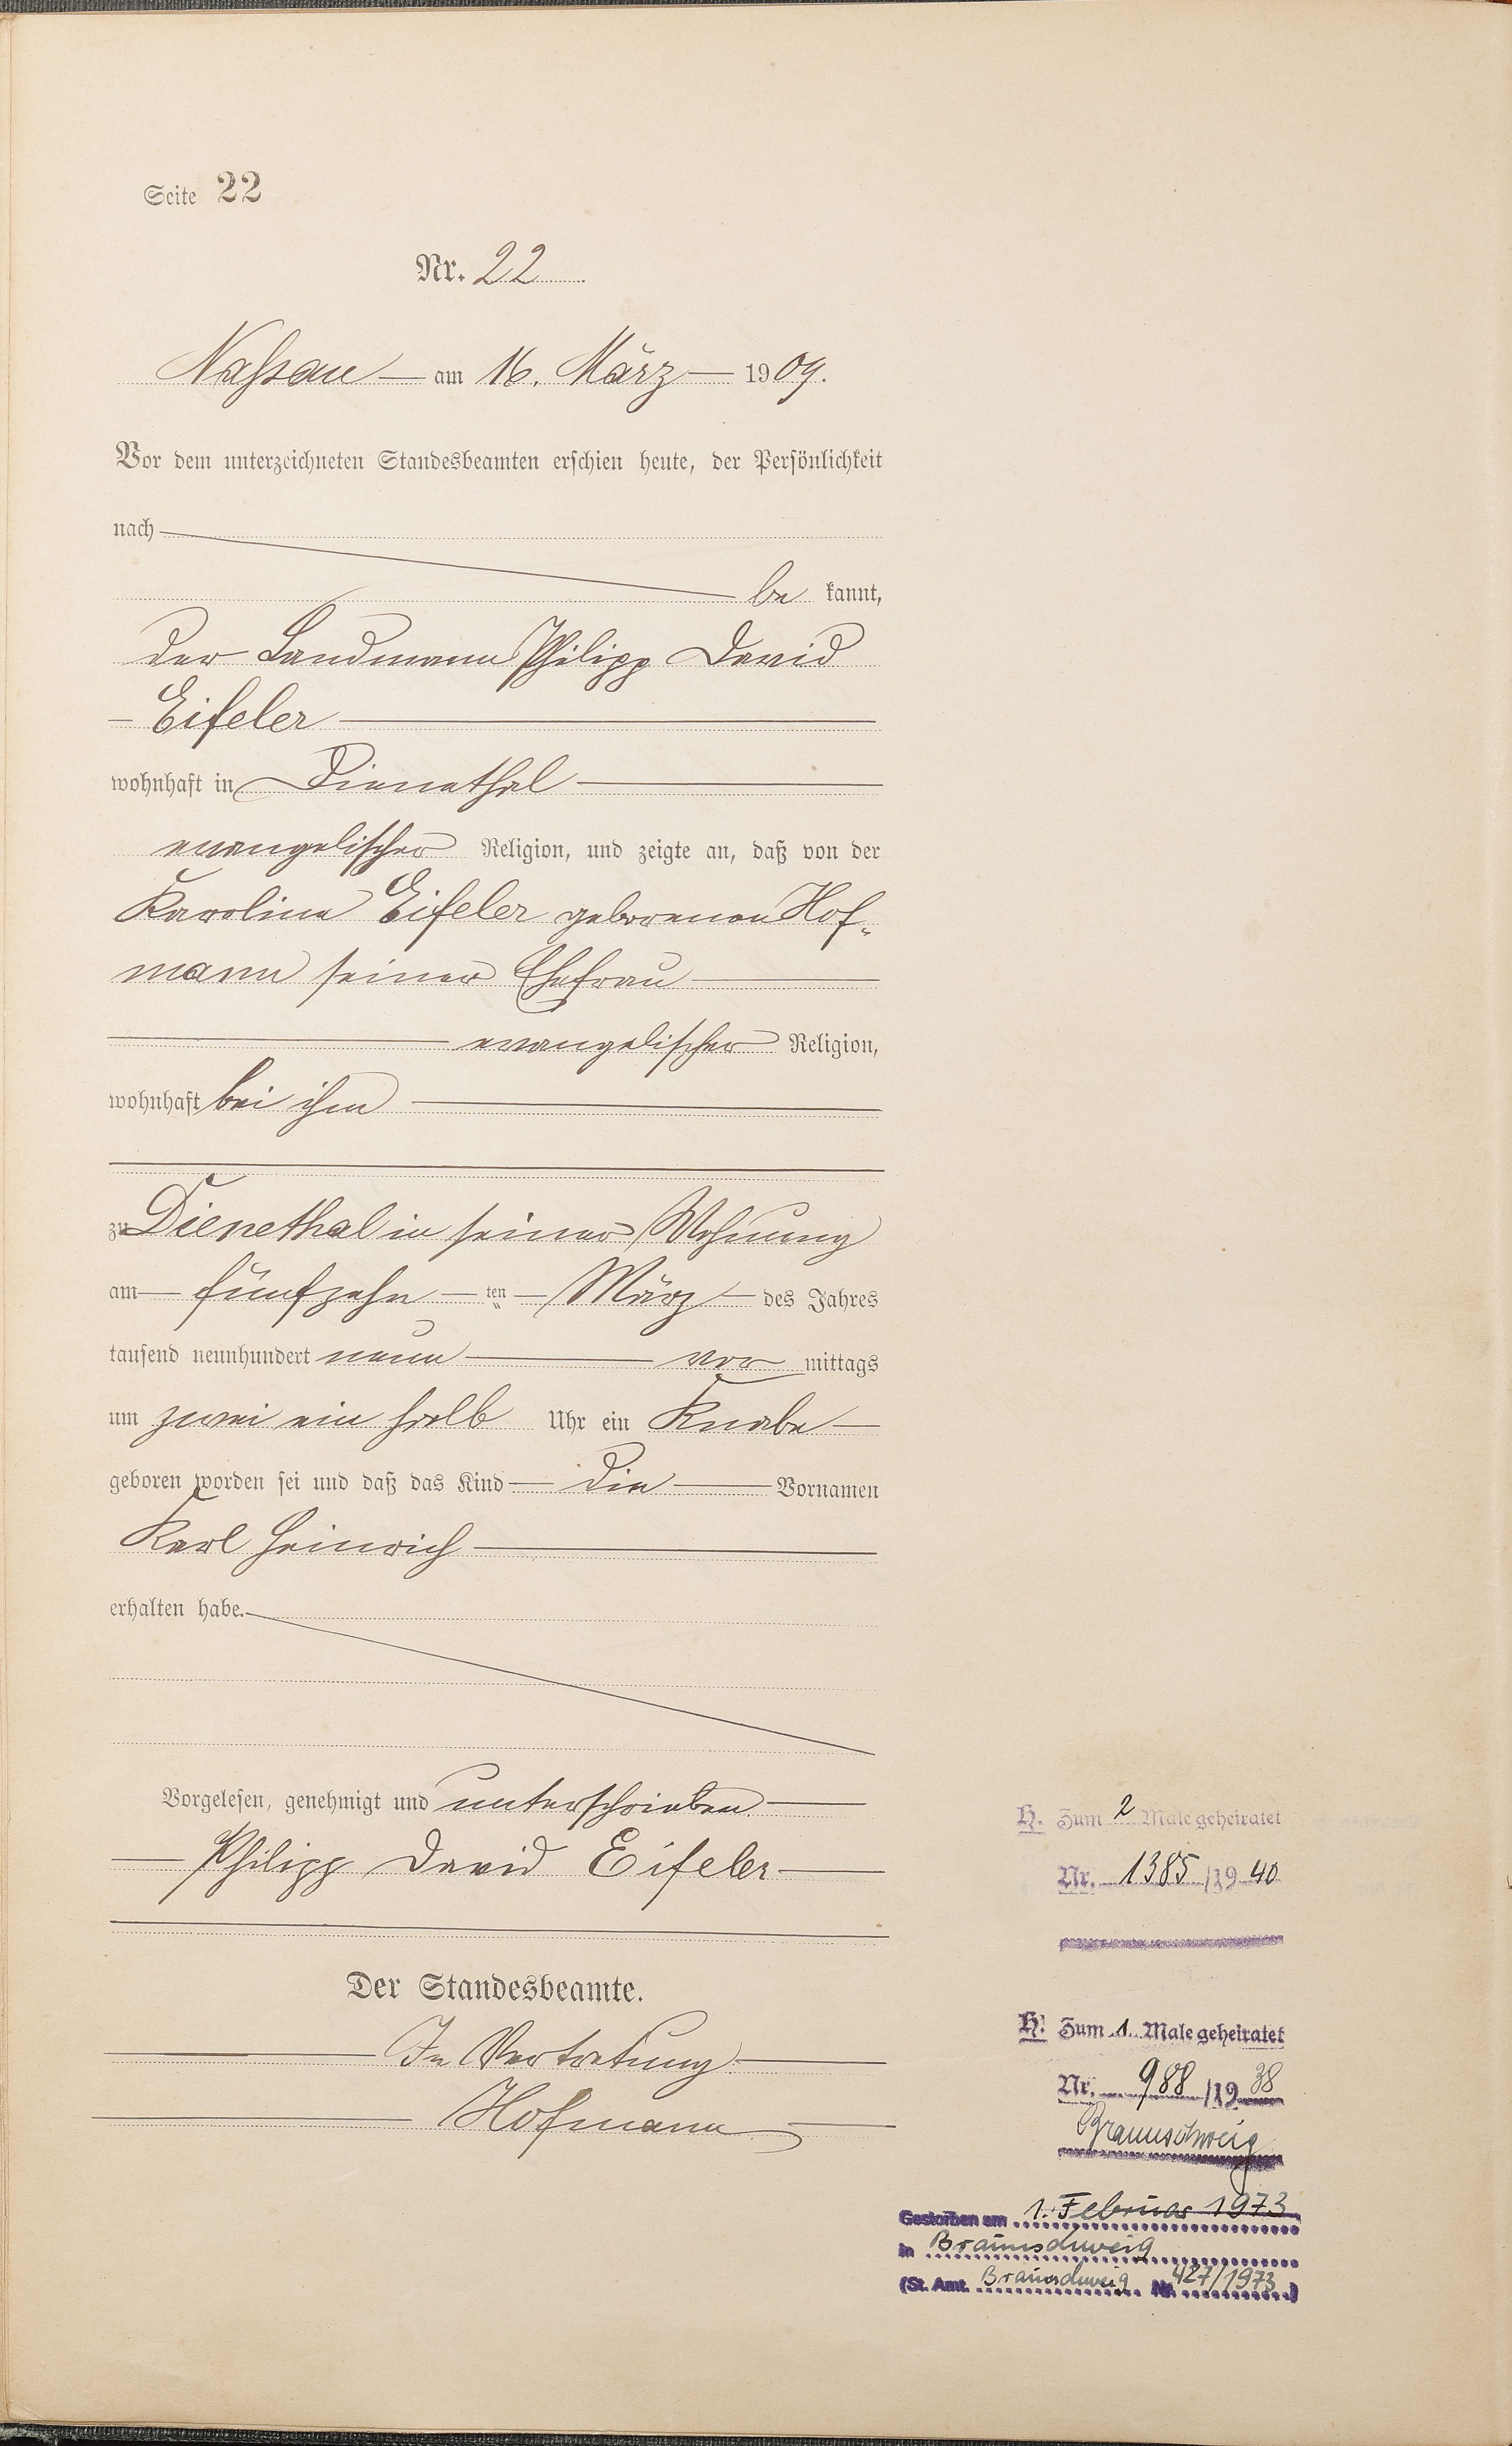 Seite 22
Nr. 22
Nassau am 16. März 1909.
Vor dem unterzeichneten Standesbeamten erschien heute, der Persönlichkeit
nach
be kannt,
der Landmann Philipp David
Eifeler
wohnhaft in Dienethal
evangelischer Religion, und zeigte an, daß von der
Karoline Eifeler geborenen Hof-
mann seiner Ehefrau
evangelischer Religion,
wohnhaft bei ihm
zu Dienethal in seiner Wohnung
am fünfzehn ten März des Jahres
tausend neunhundert neun vor mittags
um zwei ein halb Uhr ein Knabe
geboren worden sei und daß das Kind die Vornamen
Karl Heinrich
erhalten habe.
Vorgelesen, genehmigt und unterschrieben
Philipp David Eifeler
Der Standesbeamte.
In Vertretung
Hofmann
H. Zum 2 Male geheiratet
Nr. 1385/1940
H. Zum 1. Male geheiratet
Nr. 988/1938
Braunschweig
Gestorben am 1. Februar 1973
in Braunschweig
(St. Amt Braunschweig Nr. 427/1973)